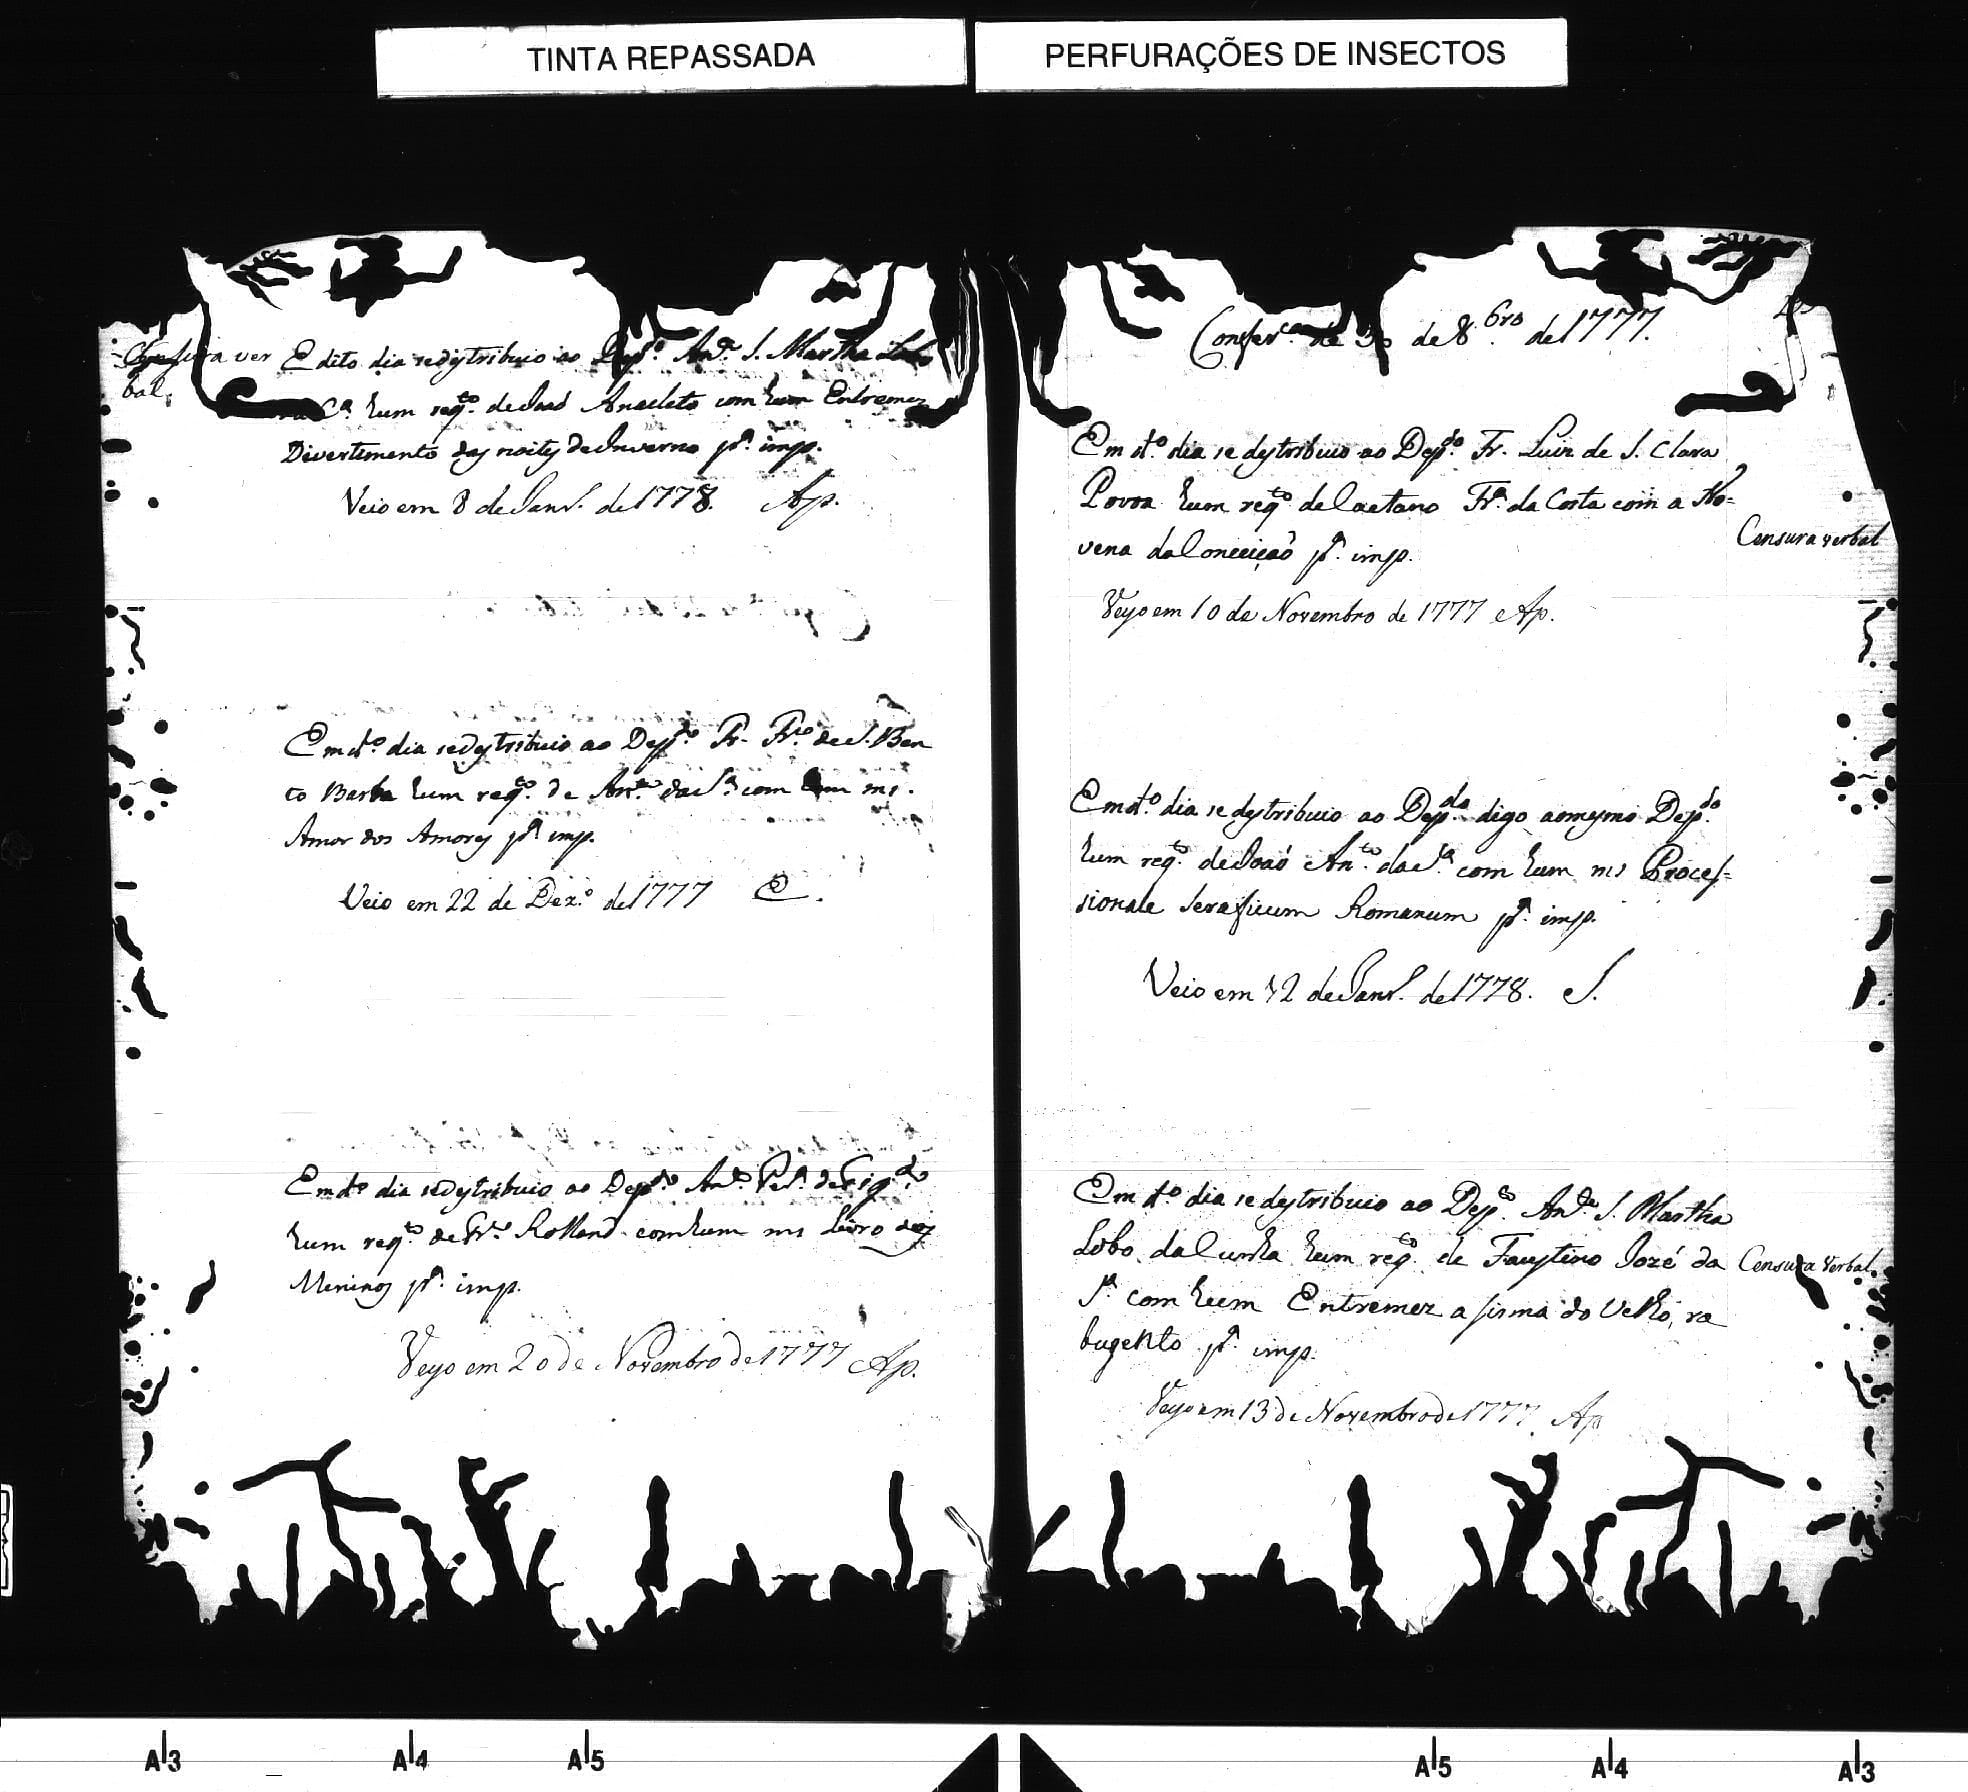 TINTA REPASSADA
PERFURAÇÕES DE INSECTOS
Censura ver
bal,
E dito dia se destribuio ao Dep.do An.de S. Martha Lobo
da C.ª hum req.to de Joaó Anacleto com hum Entremez
Divertimento das noites de Inverno p.ª imp.
Veio em 8 de Janr.º de 1778. Ap.
Em d.º dia se destribuio ao Dep.do Fr. Fr.co de S. Ben
to Barba hum req.to de Ant.º da S.ª com hum ms.
Amor dos Amores p.ª imp.
Veio em 22 de Dez.º de 1777
Em d.º dia se destribuio ao Dep.do Ant.º Per.ª de Fig.do
hum req.to de Fr.co Rolland com hum ms Livro dos
Meninos p.ª imp.
Veyo em 20 de Novembro de 1777 Ap.
Confer.ª de 30 de 8.bro de 1777.
Em d.º dia se destribuio ao Dep.do Fr. Luiz de S. Clara
Povoa hum req.to de Caetano Fr.ª da Costa com a No=
vena da Conceiçaõ p.ª imp.
Censura verbal
Veyo em 10 de Novembro de 1777 Ap.
Em d.º dia se destribuio ao Dep.do digo ao mesmo Dep.do
hum req.to de Joaó An.to da S.ª com hum ms Proces=
sionale Seraficum Romanum p.ª imp.
Veio em 12 de Janr.º de 1778. S.
Em d.º dia se destribuio ao Dep.to An.de S. Martha
Lobo da Cunha hum req.to de Faustino Jozé da
Censura verbal
S.ª com hum Entremez a sisma do Velho, ra
bugento p.ª imp.
Veyo em 13 de Novembro de 1777 Ap
A3
A4
A5
A5
A4
A3